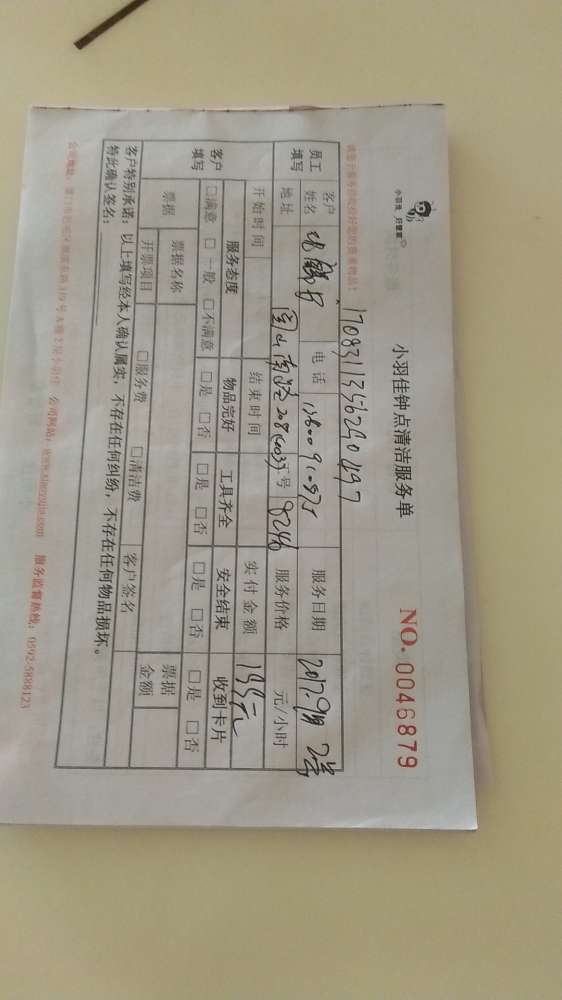 小羽佳 好管家
小羽佳钟点清洁服务单
NO. 0046879
请您于服务前收好您的贵重物品！
1708311356290497
员工填写 客户姓名 电话 服务日期 2017.9月2号
地址 208(603) 工号 8246 服务价格 元/小时
开始时间 结束时间 实付金额 135元
客户填写 服务态度 物品完好 工具齐全 安全结束 收到卡片
□满意 □一般 □不满意 □是 □否 □是 □否 □是 □否 □是 □否
票据 票据名称 票据金额
开票项目 □服务费 □清洁费 客户签名
客户特别承诺：以上填写经本人确认属实，不存在任何纠纷，不存在任何物品损坏。
特此确认签名：
公司网站：www.xiaoyujia.com 服务监督热线：0592-5888123